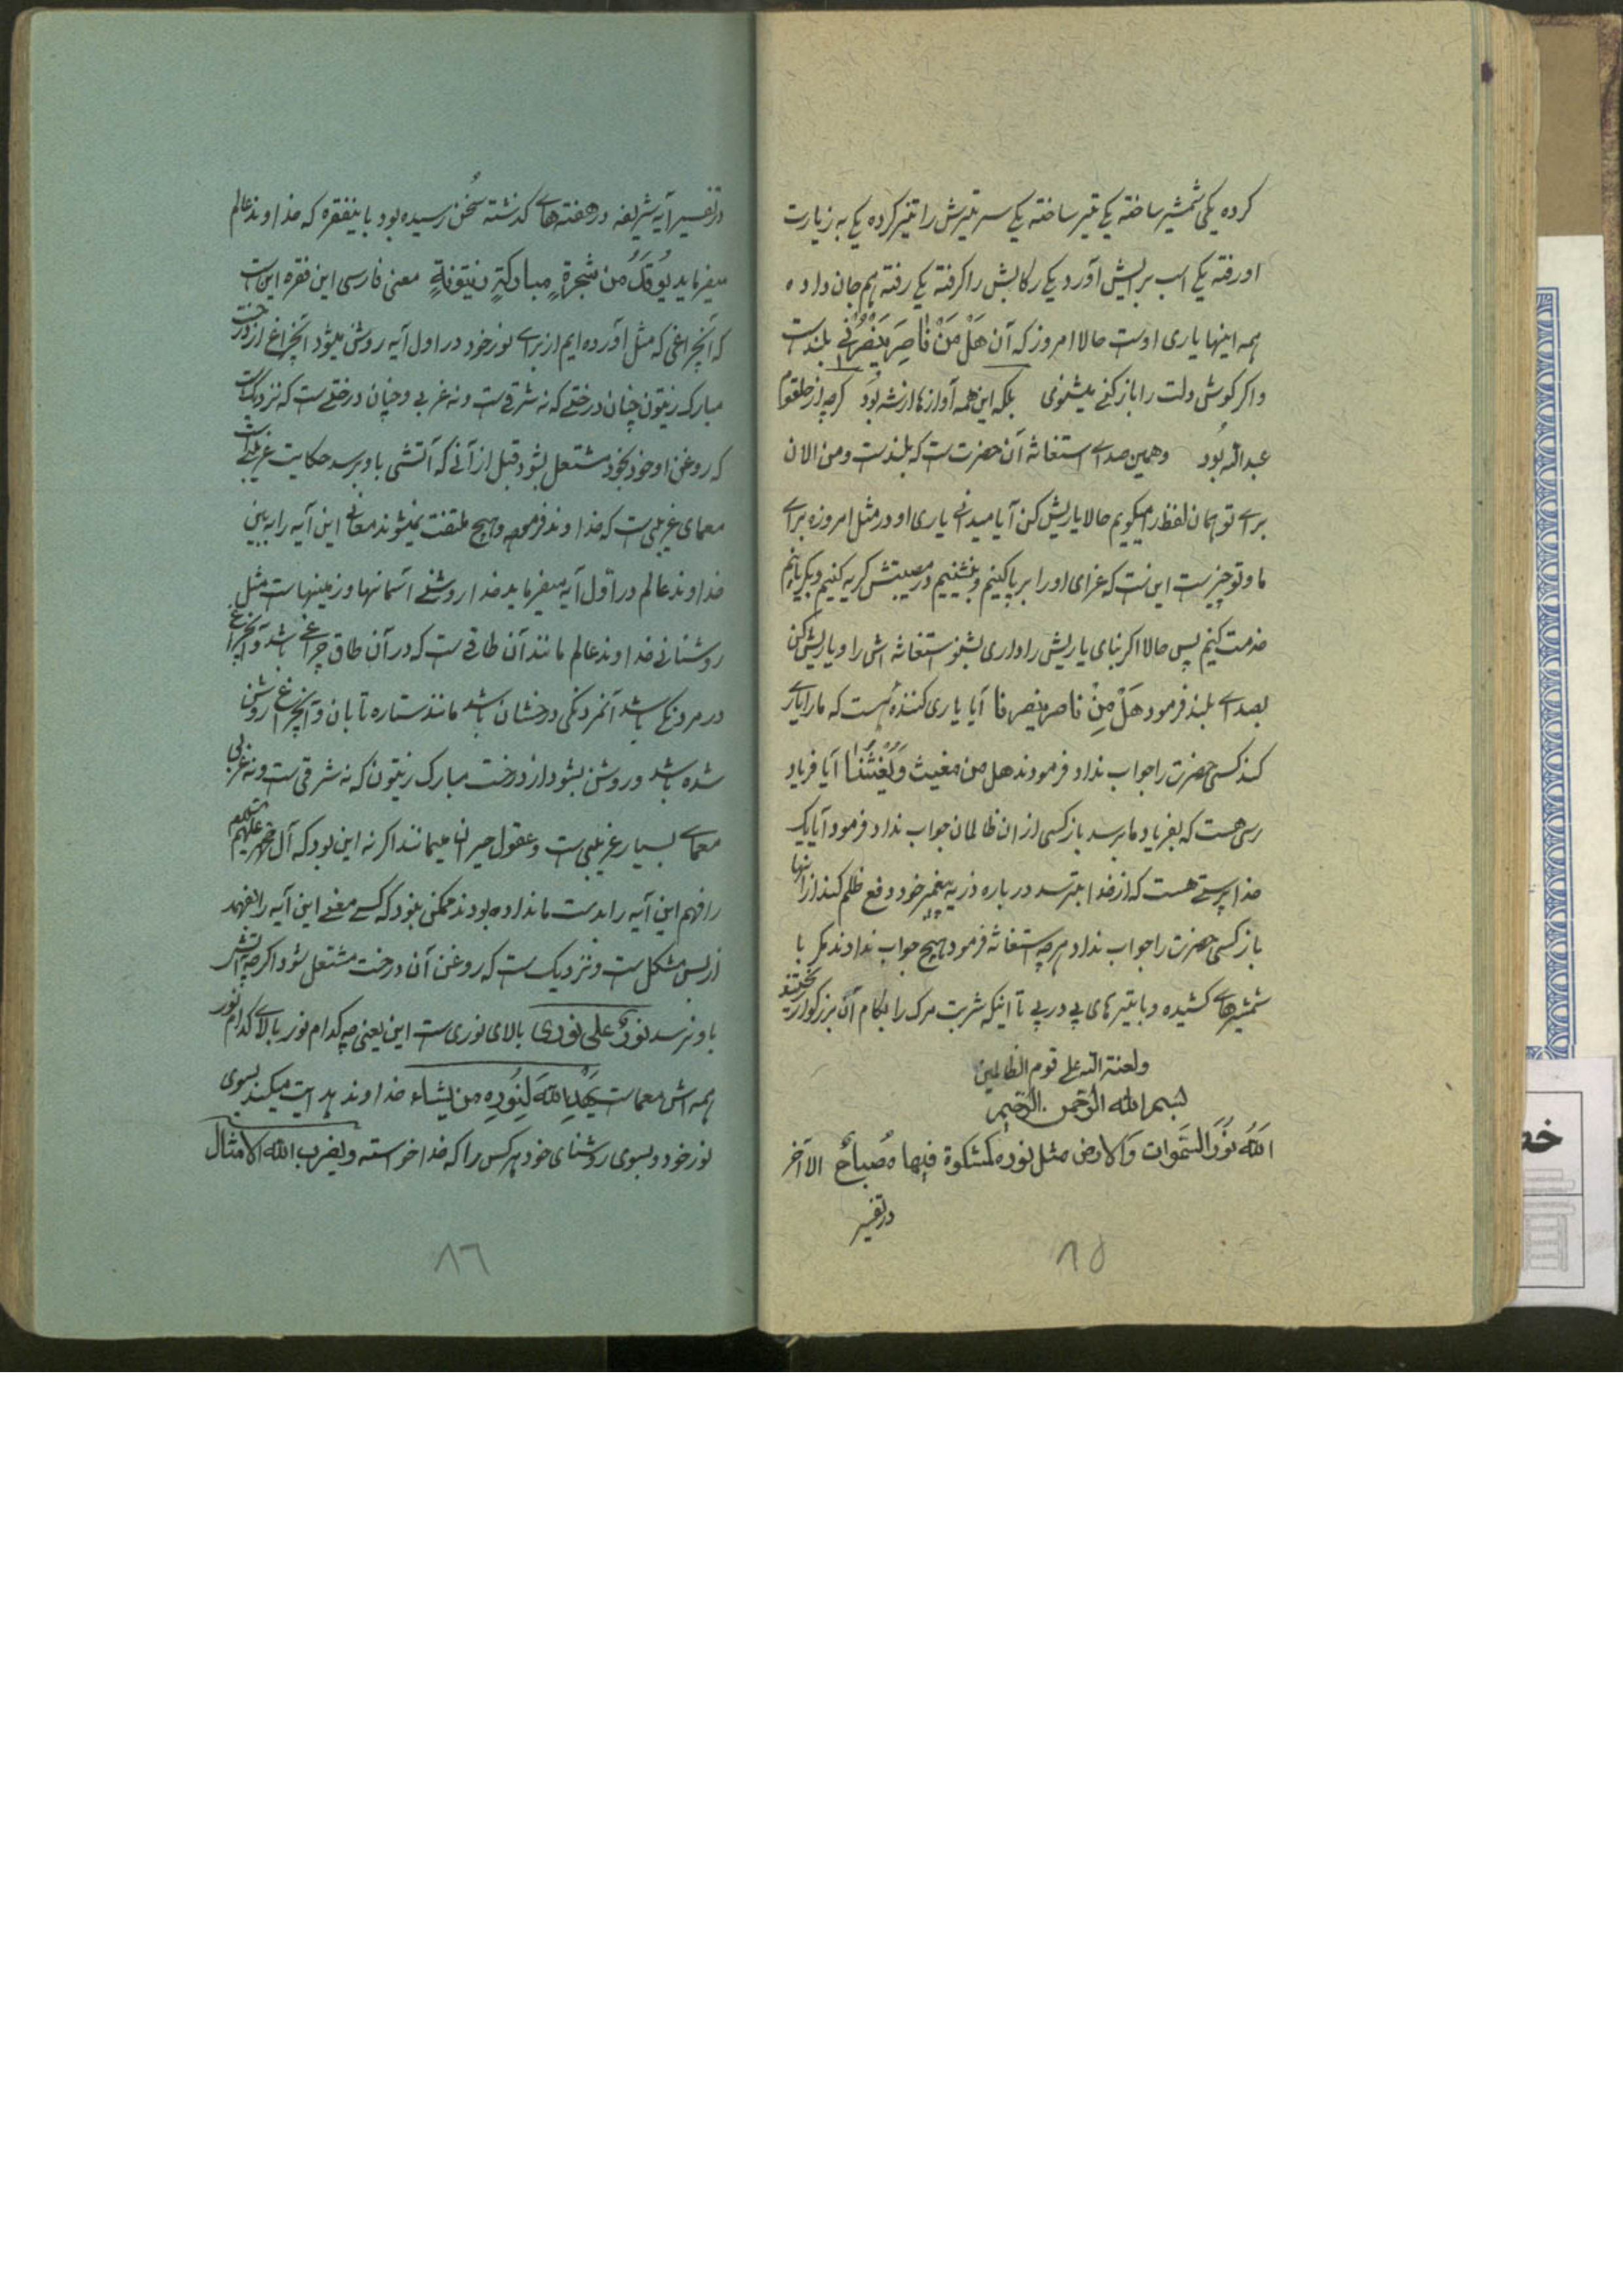 کرده یکی شمشیر ساخته یکی تیر ساخته یکی سر تیرش را تیز کرده یکی به زیارت
او رفته یکی اسب برایش آورد یکی رکابش را گرفته یکی رفته هم جان داده
همه اینها یاری اوست حالا امروز که آن هَلْ مَنْ نٰاصِرَ یَنْصُرُنٖی بلندست
و اگر گوش دلت را باز کنی میشنوی بلکه این همه آوازها از شه بُوَد گرچه از حلقوم
عبدالله بُود و همین صدای استغاثه آن حضرت ست که بلندست و من الان
برای تو همان لفظ را میگویم حالا یاریش کن آیا میدانی یاری او در مثل امروزه برای
ما و تو چیزست این ست که عزای او را برپا کنیم و بنشینیم در مصیبتش گریه کنیم و بگریانیم
خدمت کنیم پس حالا اگر بنای یاریش را داری بشنو استغاثه اش را و یاریش کن
بصدای بلند فرمود هَلْ مِنْ ناصر ینصرنا آیا یاری کننده هست که ما را یاری
کند کسی حضرت را جواب نداد فرمودند هل من مغیث وَیُغْثُنٰا آیا فریاد
رسی هست که بفریاد ما برسد باز کسی از ان ظالمان جواب نداد فرمود آیا یک
خدا پرستی هست که از خدا بترسد در باره ذریه پیغمبر خود دفع ظلم کند از آنها
باز کسی حضرت را جواب نداد هرچه استغاثه فرمود هیچ جواب ندادند مگر با
شمشیرهای کشیده و با تیرهای پی در پی تا اینکه شربت مرگ را بکام آن بزرگوار ریختند
ولعنة الله علی قوم الظالمین
بسم الله الرحمن الرحیم
اَللهُ نُورُ السَّمٰوات وَالارض مثل نوره کمشکوة فیها مُصباحٌ الآخر
در تفسیر
۸۵
در تفسیر آیه شریفه در هفته های گذشته سُخن رسیده بود باینفقره که خداوند عالم
میفرماید یُوقَدُ من شجرةٍ مبارکةٍ زیتونةٍ معنی فارسی این فقره این ست
که آنچراغی که مثل آورده ایم از برای نور خود در اول آیه روشن میشود آنچراغ از درخت
مبارک زیتون چنان درختی که نه شرقی ست و نه غربی و چنان درختی ست که نزدیک ست
که روغن او خود بخود مشتعل بشود قبل از آنی که آتشی باو برسد حکایت غریبی ست
معمای غریبی ست که خداوند فرموده و هیچ ملتفت نمیشوند معانی این آیه را به بین
خداوند عالم در اوّل آیه میفرماید خدا روشنی آسمانها و زمینهاست مثل
روشنائی خداوند عالم مانند آن طاقی ست که در آن طاق چراغی باشد و آنچراغ
در مردنگی باشد آنمردنگی درخشان باشد مانند ستاره تابان و آنچراغ روشن
شده باشد و روشن بشود از درخت مبارک زیتون که نه شرقی ست و نه غربی
معمای بسیار غریبی ست و عقول حیران میمانند اگر نه این بود که آل محمد علیهم السلام
را فهم این آیه را بدست ما نداده بودند ممکن نبود که کسی معنی این آیه را بفهمد
از بس مشکل ست و نزدیک ست که روغن آن درخت مشتعل شود اگرچه آتش
باو نرسد نورٌ علی نوری بالای نوری ست این یعنی چه کدام نور بالای کدام نور
همه اش معماست یَهْدِی اللهَ لِنُورِه من یشاء خداوند هدایت میکند بسوی
نور خود و بسوی روشنای خود هر کس را که خدا خواسته ویضرب الله الامثال
۸٦
خط